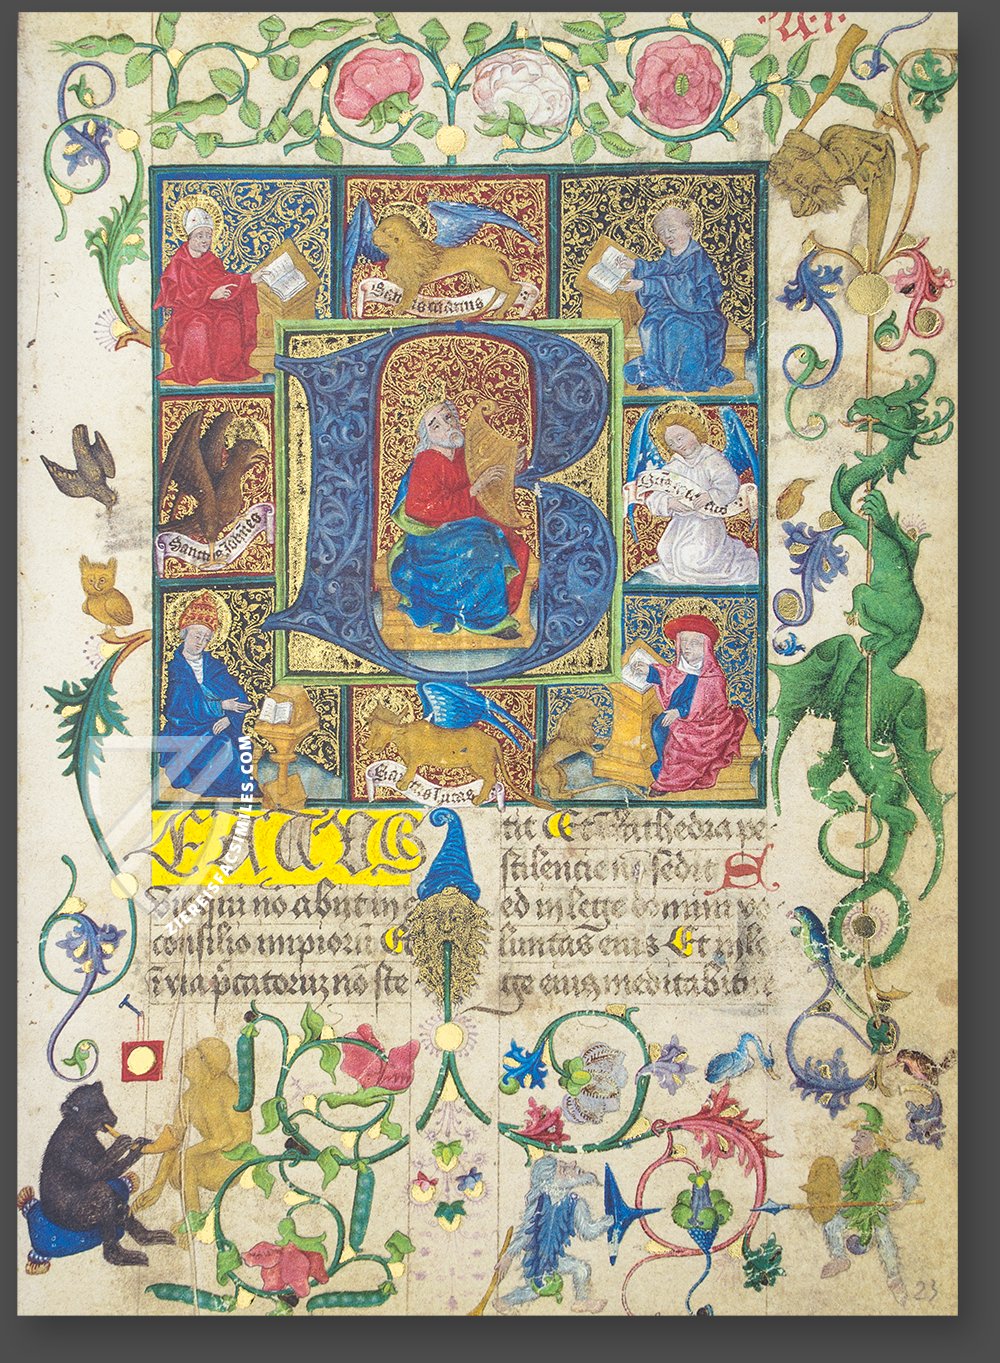 Sanctus marcus
B
Sanctus Johãnes
Sanctus lucas
EATVS
vir qui nõ abiit in
consilio impiorũ Et
ĩ via pctatoruz nõ ste
tit Et ĩ cathedra pe-
stilencie nõ sedit S
ed in lege domini vo-
luntas eius Et ĩ le
ge eius meditabit~ e
23
ZIEREISFACSIMILES.COM